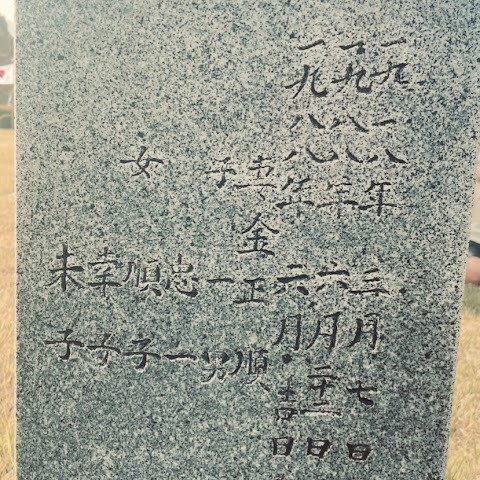 一九一八年三月七日
一九八八年六月二十一日
一九八八年六月吉日
妻金正順
子一男
忠一
女順子
幸子
未子